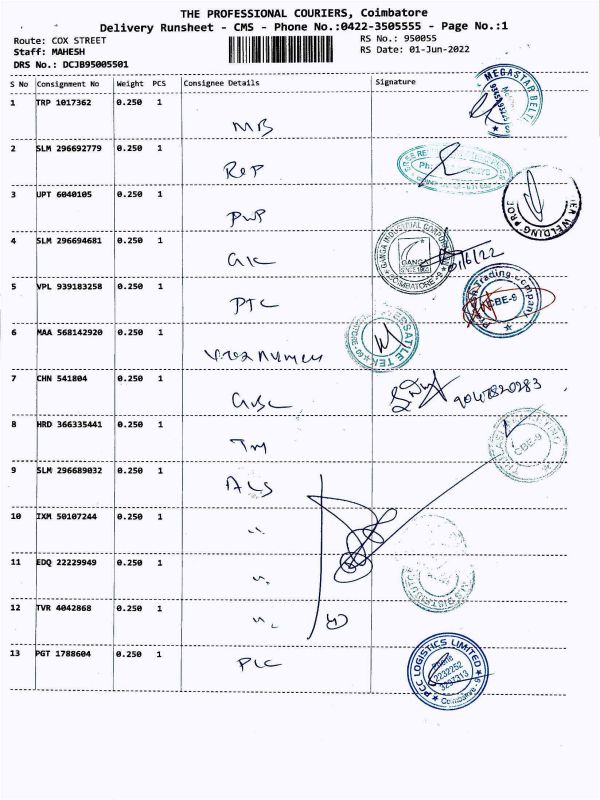 THE PROFESSIONAL COURIERS, Coimbatore
Delivery Runsheet - CMS - Phone No.:0422-3505555 - Page No.:1
Route: COX STREET
RS No.: 950055
Staff: MAHESH
RS Date: 01-Jun-2022
DRS No.: DCJB95005501
S No Consignment No Weight PCS Consignee Details Signature
1 TRP 1017362 0.250 1 MB
MEGASTAR BELT
2 SLM 296692779 0.250 1 REP
3 UPT 6040105 0.250 1 PWP
WELDING PROD
4 SLM 296694681 0.250 1 GIC
GANGA INDUSTRIAL CORPORATION
GANGA
SINCE
COIMBATORE-9
/6/22
5 VPL 939183258 0.250 1 PTC
Trading Company
CBE-9
6 MAA 568142920 0.250 1
VERSATILE TEK
7 CHN 541804 0.250 1
9047820283
8 HRD 366335441 0.250 1 TM
CBE-9
9 SLM 296689032 0.250 1 ALS
10 IXM 50107244 0.250 1 "
11 EDQ 22229949 0.250 1 "
12 TVR 4042868 0.250 1 "
13 PGT 1788604 0.250 1 PLC
PCC LOGISTICS LIMITED
Phone
2232252
3297313
Coimbatore-9